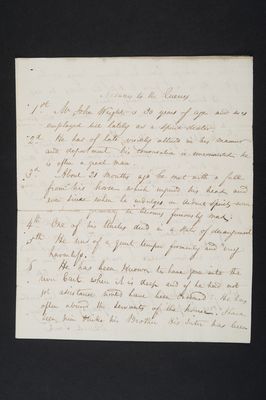 Answers to the Queries
1st Mr John Wright is 30 years of age and was
employed till lately as a spirit dealer.
2d He has of late visibly altered in his manner
and deportment his conversation is unconnected he
is often a great man.
3d About 21 months ago he met with a fall
from his horse which injured his head and
ever since when he indulges in ardent spirits even
to become furiously mad.
4th One of his Uncles died in a state of derangement
5th He was of a quiet temper formerly and very
harmless.
6 He has been known to have gone into the
river Cart when it is deep and if he had not
got assistance would have been drowned. He has
often abused the servants of the house. Since
his Brother his Sister has been